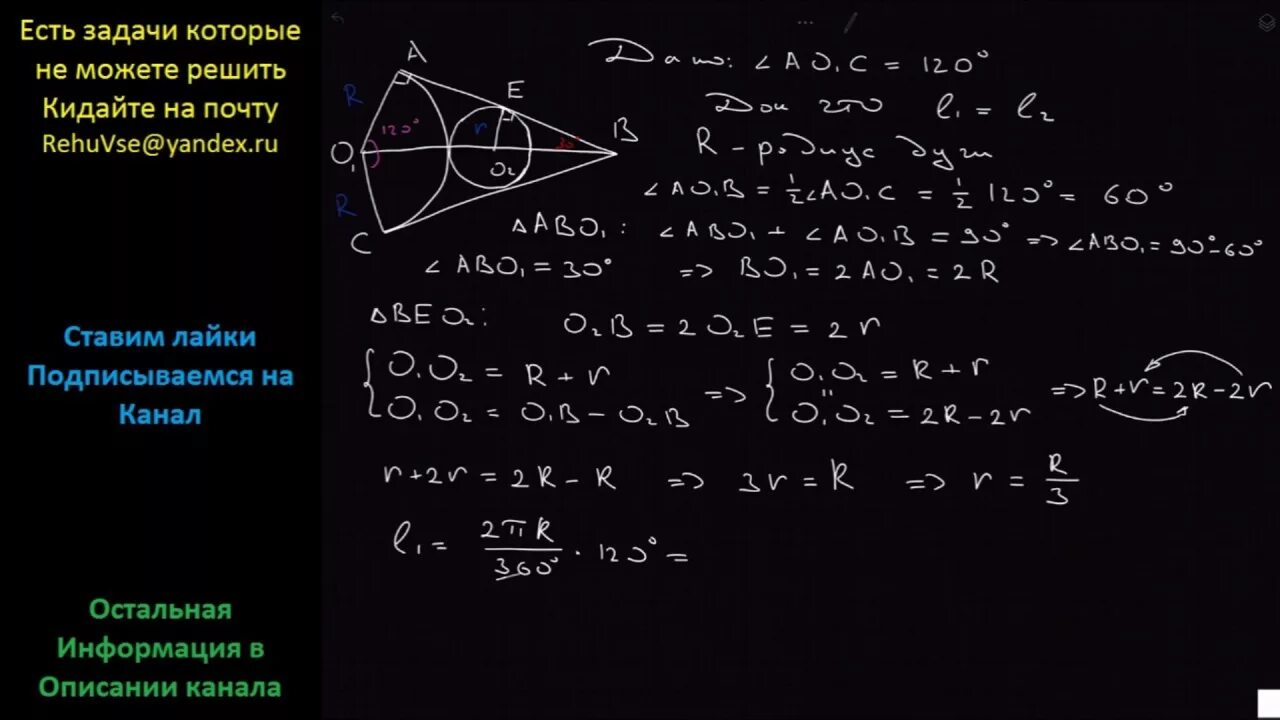 Есть задачи которые
не можете решить
Кидайте на почту
RehuVse@yandex.ru
Ставим лайки
Подписываемся на
Канал
Остальная
Информация в
Описании канала
A
E
B
R
120°
r
30°
O₁
O₂
R
C
Дано: ∠AO₁C = 120°
Док что l₁ = l₂
R – радиус дуги
∠AO₁B = ½∠AO₁C = ½ 120° = 60°
△ABO₁: ∠ABO₁ + ∠AO₁B = 90° => ∠ABO₁ = 90° – 60°
∠ABO₁ = 30° => BO₁ = 2AO₁ = 2R
△BEO₂: O₂B = 2O₂E = 2r
{ O₁O₂ = R + r => { O₁O₂ = R + r => R + r = 2R – 2r
{ O₁O₂ = O₁B – O₂B { O₁O₂ = 2R – 2r
r + 2r = 2R – R => 3r = R => r = R/3
l₁ = 2πR/360° · 120° =